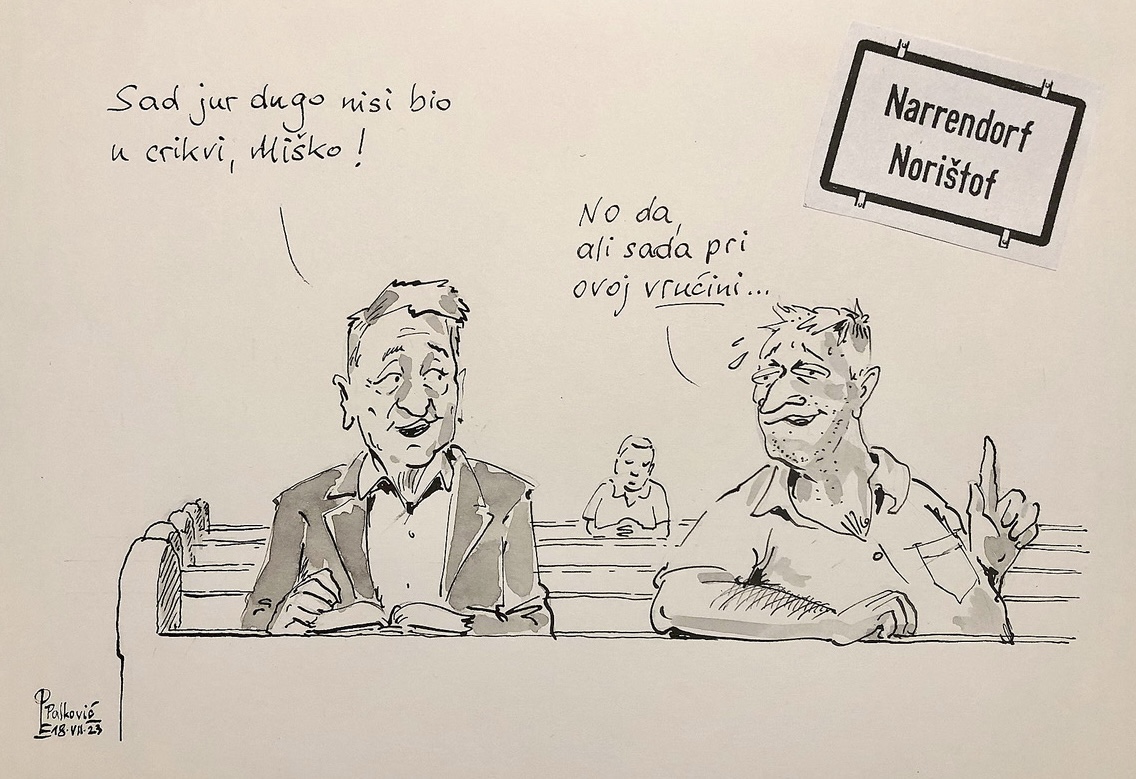 Sad jur dugo nisi bio
u crikvi, Miško!
No da,
ali sada pri
ovoj vrućini...
Narrendorf
Norištof
Palković
18.VII.23